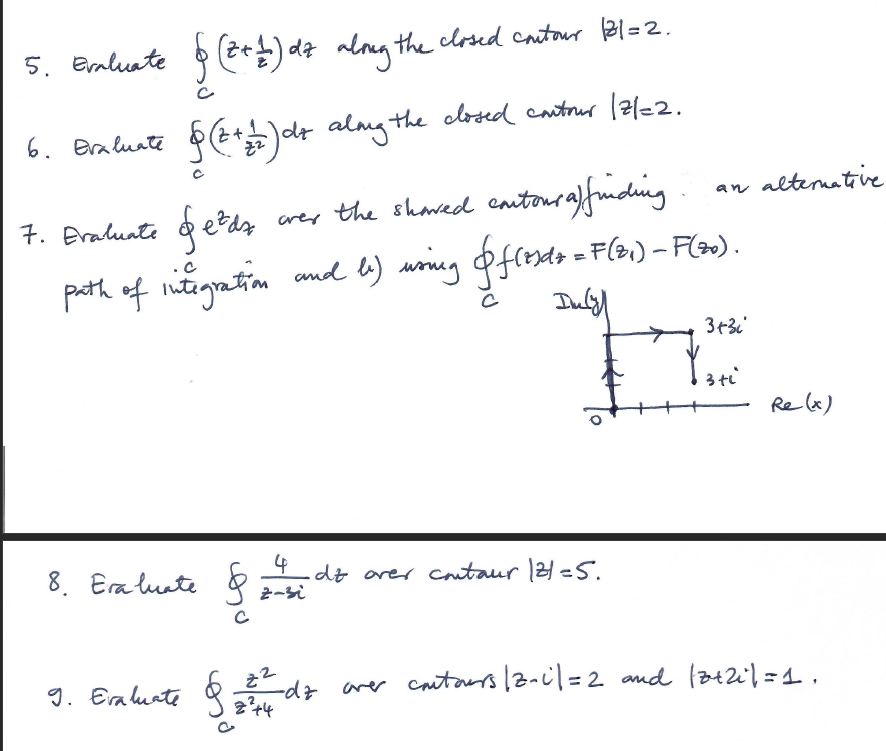 5. Evaluate ∮_C (z+1/z) dz along the closed contour |z|=2.
6. Evaluate ∮_C (z+1/z²) dz along the closed contour |z|=2.
7. Evaluate ∮_C e^z dz over the showed contour a) finding an alternative
path of integration and b) using ∮_C f(z)dz = F(z₁) – F(z₀).
Im(y)
3+3i
3+i
0
Re(x)
8. Evaluate ∮_C 4/(z-3i) dz over contour |z|=5.
9. Evaluate ∮_C z²/(z²+4) dz over contours |z-i|=2 and |z+2i|=1.